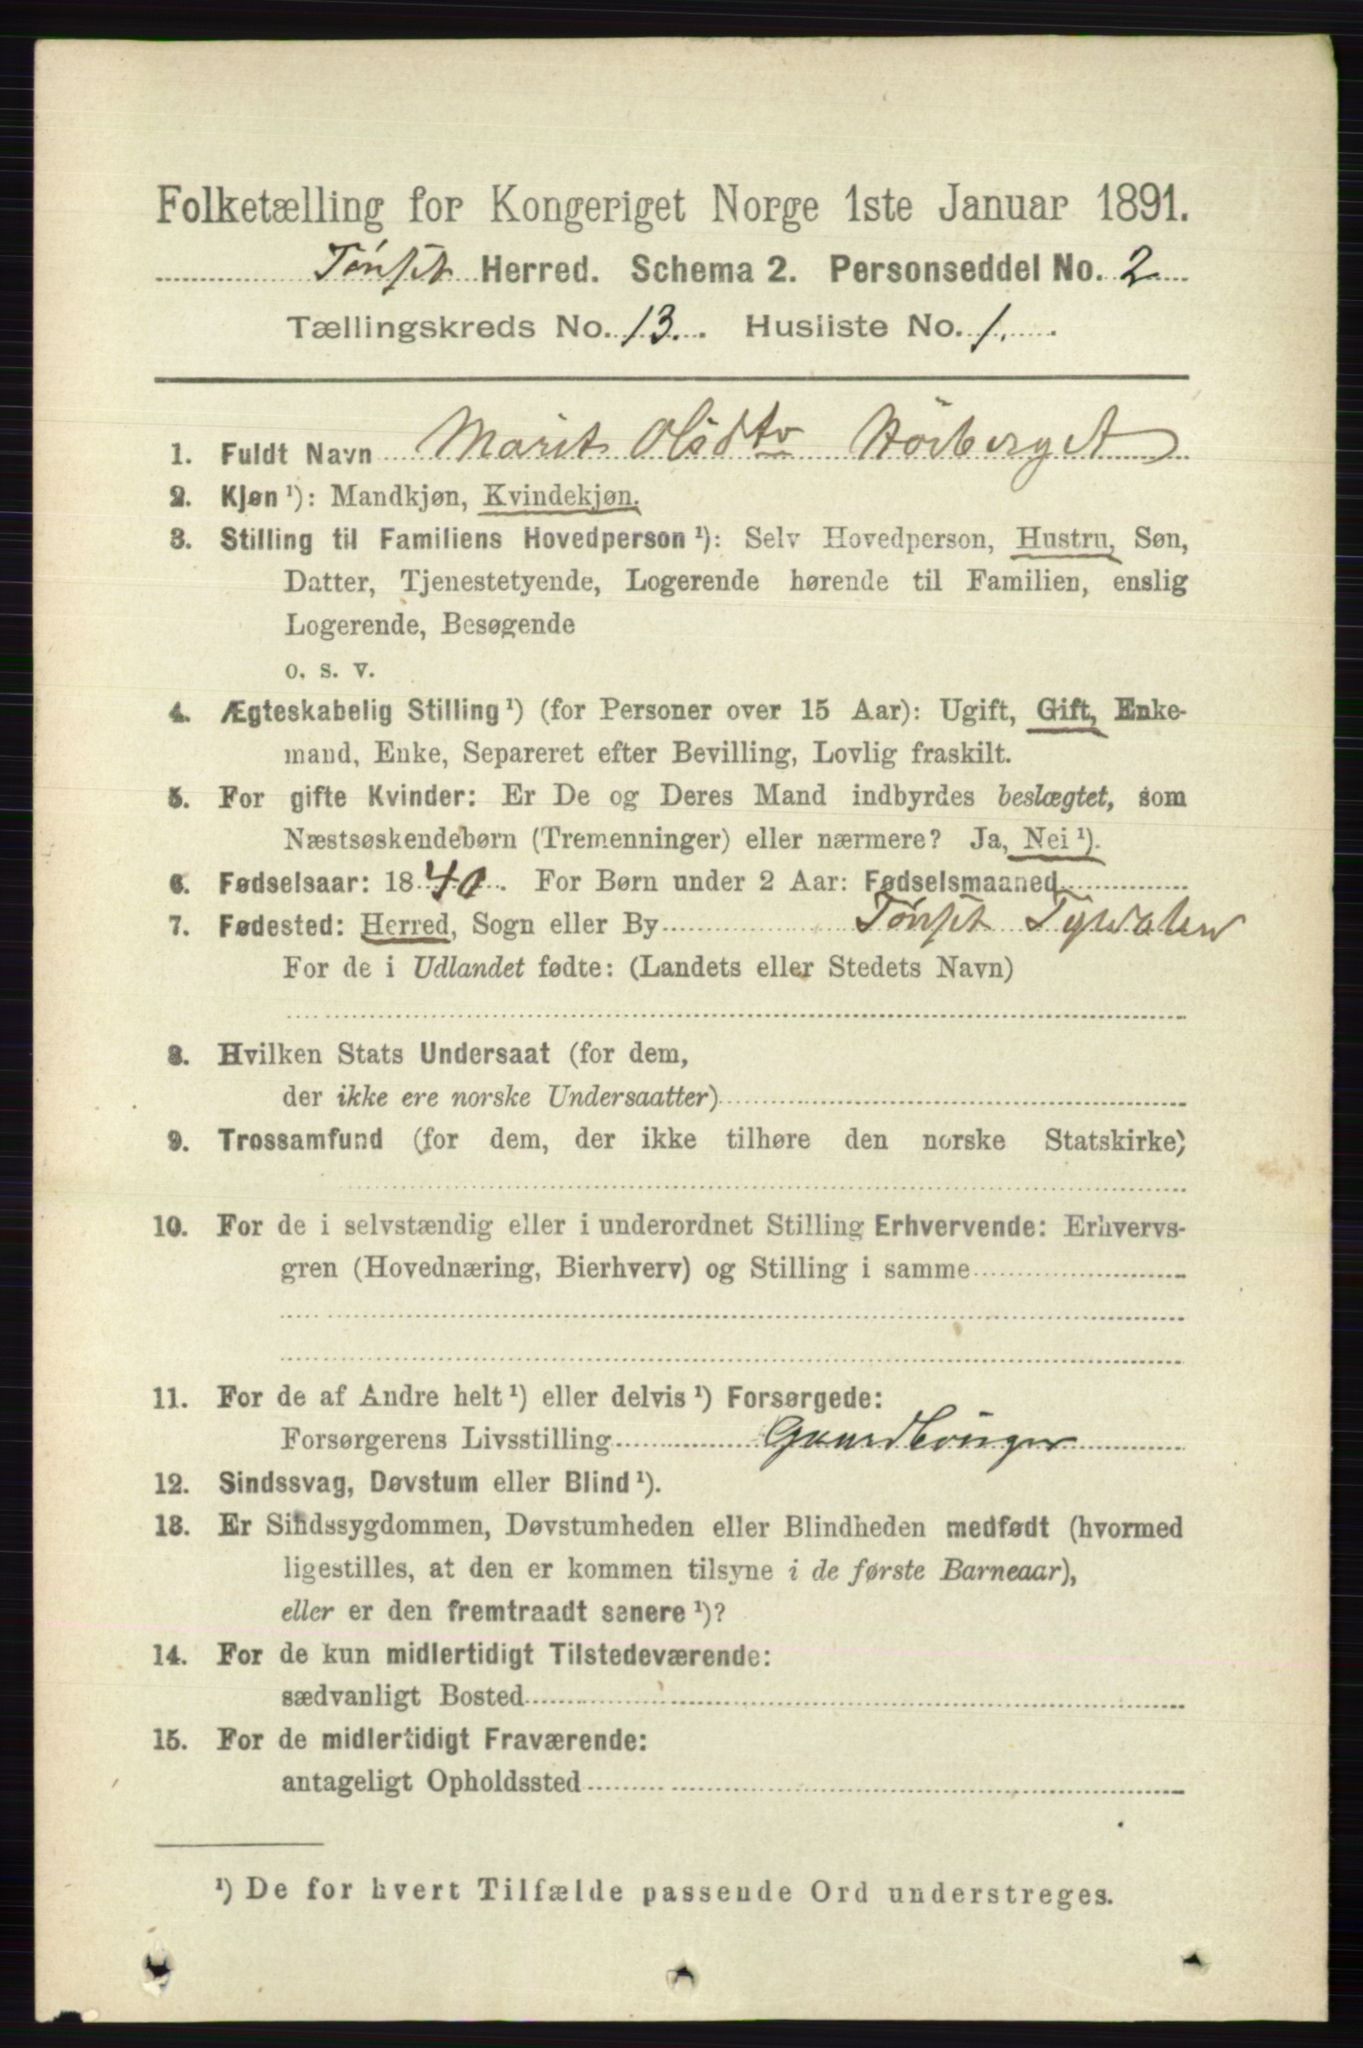 Folketælling for Kongeriget Norge 1ste Januar 1891.
Tønset Herred. Schema 2. Personseddel No. 2
Tællingskreds No. 13. Husliste No. 1.
1. Fuldt Navn Marit Olsdtr
2. Kjøn ¹): Mandkjøn, Kvindekjøn.
3. Stilling til Familiens Hovedperson ¹): Selv Hovedperson, Hustru, Søn,
Datter, Tjenestetyende, Logerende hørende til Familien, enslig
Logerende, Besøgende
o. s. v.
4. Ægteskabelig Stilling ¹) (for Personer over 15 Aar): Ugift, Gift, Enke-
mand, Enke, Separeret efter Bevilling, Lovlig fraskilt.
5. For gifte Kvinder: Er De og Deres Mand indbyrdes beslægtet, som
Næstsøskendebørn (Tremenninger) eller nærmere? Ja, Nei ¹).
6. Fødselsaar: 1840. For Børn under 2 Aar: Fødselsmaaned
7. Fødested: Herred, Sogn eller By Tønset Tyldalen
For de i Udlandet fødte: (Landets eller Stedets Navn)
8. Hvilken Stats Undersaat (for dem,
der ikke ere norske Undersaatter)
9. Trossamfund (for dem, der ikke tilhøre den norske Statskirke)
10. For de i selvstændig eller i underordnet Stilling Erhvervende: Erhvervs-
gren (Hovednæring, Bierhverv) og Stilling i samme
11. For de af Andre helt ¹) eller delvis ¹) Forsørgede:
Forsørgerens Livsstilling Gaardbruger
12. Sindssvag, Døvstum eller Blind ¹).
13. Er Sindssygdommen, Døvstumheden eller Blindheden medfødt (hvormed
ligestilles, at den er kommen tilsyne i de første Barneaar),
eller er den fremtraadt senere ¹)?
14. For de kun midlertidigt Tilstedeværende:
sædvanligt Bosted
15. For de midlertidigt Fraværende:
antageligt Opholdssted
¹) De for hvert Tilfælde passende Ord understreges.